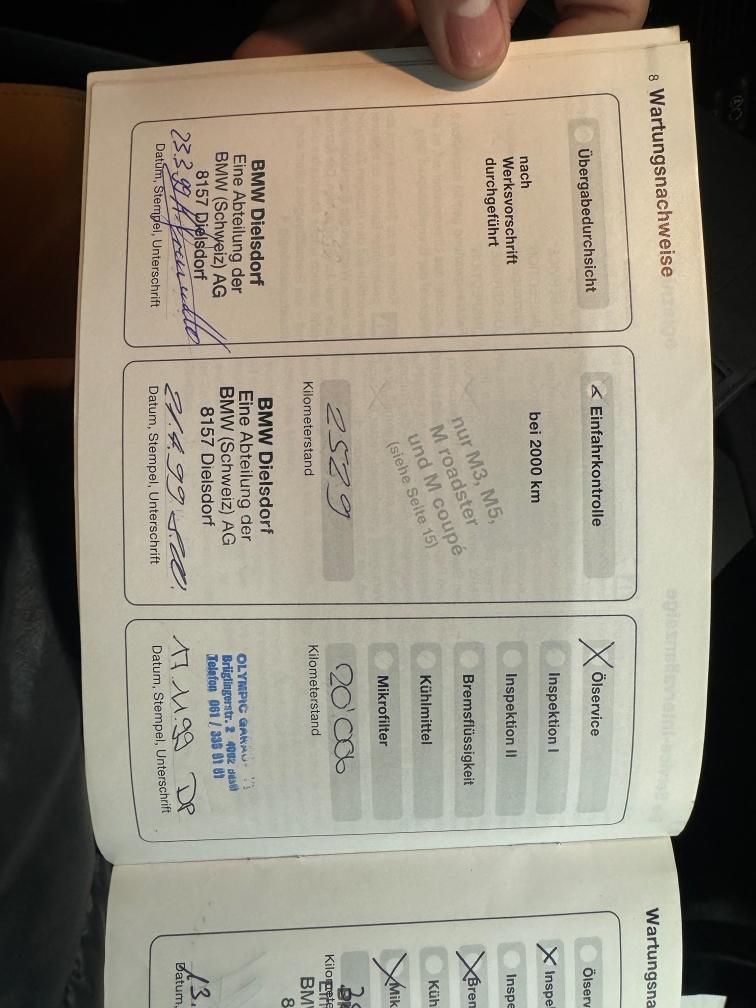 8 Wartungsnachweise
Übergabedurchsicht
nach
Werksvorschrift
durchgeführt
BMW Dielsdorf
Eine Abteilung der
BMW (Schweiz) AG
8157 Dielsdorf
23.3.99
Datum, Stempel, Unterschrift
Einfahrkontrolle
bei 2000 km
nur M3, M5,
M roadster
und M coupé
(siehe Seite 15)
2529
Kilometerstand
BMW Dielsdorf
Eine Abteilung der
BMW (Schweiz) AG
8157 Dielsdorf
21.4.99
Datum, Stempel, Unterschrift
Ölservice
Inspektion I
Inspektion II
Bremsflüssigkeit
Kühlmittel
Mikrofilter
20'006
Kilometerstand
OLYMPIC
Brüglingerstr. 2 4002 Basel
Telefon 061 / 338 81 81
17.11.99 DP
Datum, Stempel, Unterschrift
Wartungsna
Ölserv
Inspe
Inspe
Brem
Küh
Mik
Kilome
BM
8
13.
Datum,